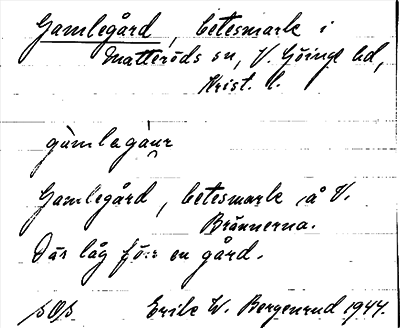 Gamlegård, betesmark i
Matteröds sn, V. Göinge hd,
Krist. l.
gàmlagàur
Gamlegård, betesmark å V.
Brännerna.
Där låg förr en gård.
Erik W. Bergenrud 1944.